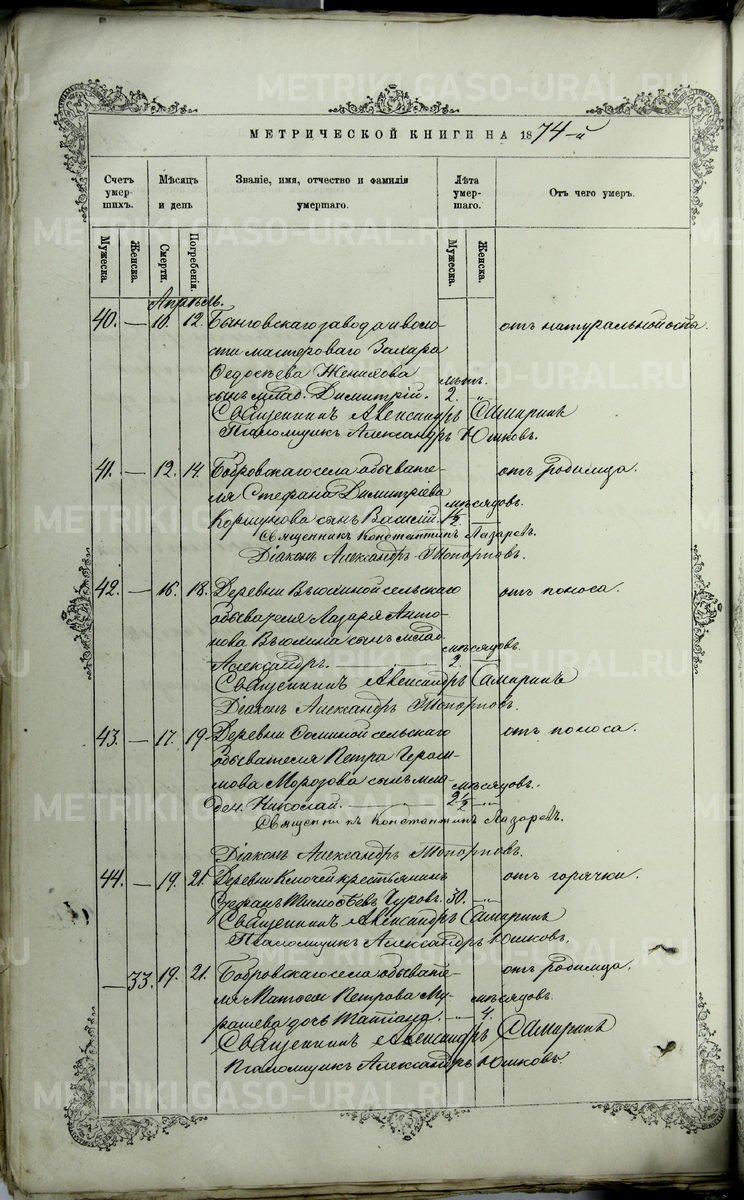 МЕТРИЧЕСКОЙ КНИГИ НА 1874-й
Счетъ умершихъ.
Мѣсяцъ и день
Званіе, имя, отчество и фамилія умершаго.
Лѣта умершаго.
Отъ чего умеръ.
Мужеска.
Женска.
Смерти.
Погребенія.
Мужеска.
Женска.
Апрѣль.
40. — 10. 12. Быньговскаго завода и воло- отъ натуральной оспы.
сти мастероваго Захара
Ѳедосѣева Женихова лѣтъ.
сынъ млад. Димитрій. 2. „
Священникъ Александръ Самаринъ
Псаломщикъ Александръ Юшковъ.
41. — 12. 14. Бобровскаго села обывате- отъ родимца.
ля Стефана Димитріева мѣсяцовъ.
Коршунова сынъ Василій. 1½ —
Священникъ Константинъ Лазаревъ.
Діаконъ Александръ Топорковъ.
42. — 16. 18. Деревни Вьюхиной сельскаго отъ поноса.
обывателя Лазаря Анто-
нова Вьюхина сынъ млад. мѣсяцовъ.
Александръ. 2. —
Священникъ Александръ Самаринъ
Діаконъ Александръ Топорковъ.
43. — 17. 19. Деревни сельскаго отъ поноса.
обывателя Петра Гераси-
мова Морозова сынъ мла- мѣсяцовъ.
ден. Николай. 2½ „
Священникъ Константинъ Лазаревъ.
Діаконъ Александръ Топорковъ.
44. — 19. 21. Деревни Ключей крестьянинъ отъ горячки.
Тимоѳеевъ 50. „
Священникъ Александръ Самаринъ
Псаломщикъ Александръ Юшковъ.
— 33. 19. 21. Бобровскаго села обывате- отъ родимца.
ля Матвея Петрова Му- мѣсяцовъ.
рашева дочь Татіана. — 4.
Священникъ Александръ Самаринъ
Псаломщикъ Александръ Юшковъ.
METRIKI.GASO-URAL.RU